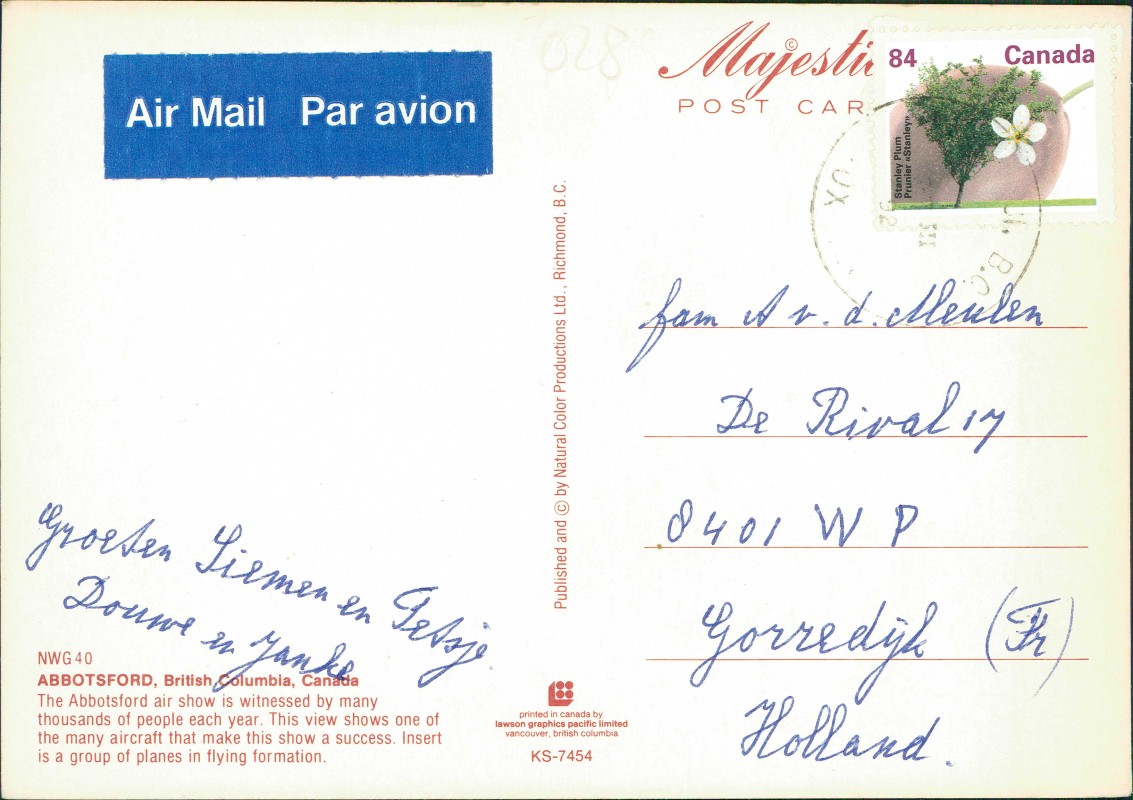 028
Air Mail Par avion
Majestic
©
POST CAR
84 Canada
Stanley Plum
Prunier «Stanley»
UX
B.C.
92
III
Published and © by Natural Color Productions Ltd., Richmond, B.C.
fam A v. d. Meulen
De Rival 17
8401 WP
Gorredijk (Fr)
Holland.
Groeten Siemen en Petsje
Douwe en Janke
NWG40
ABBOTSFORD, British Columbia, Canada
The Abbotsford air show is witnessed by many
thousands of people each year. This view shows one of
the many aircraft that make this show a success. Insert
is a group of planes in flying formation.
printed in canada by
lawson graphics pacific limited
vancouver, british columbia
KS-7454